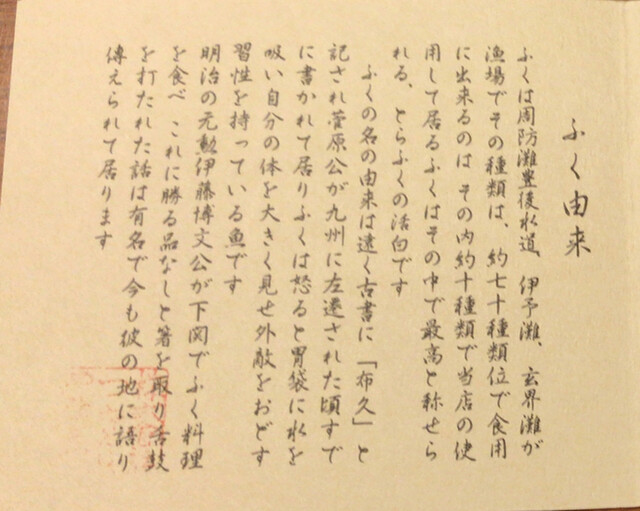 ふく由来
ふくは周防灘豊後水道、伊予灘、玄界灘が
漁場でその種類は、約七十種類位で食用
に出来るのは その内約十種類で当店の使
用して居るふくはその中で最高と称せら
れる、とらふくの活白です
ふくの名の由来は遠く古書に「布久」と
記され菅原公が九州に左遷された頃すで
に書かれて居りふくは怒ると胃袋に水を
吸い自分の体を大きく見せ外敵をおどす
習性を持っている魚です
明治の元勲伊藤博文公が下関でふく料理
を食べ これに勝る品なしと箸を取り舌鼓
を打たれた話は有名で今も彼の地に語り
傳えられて居ります